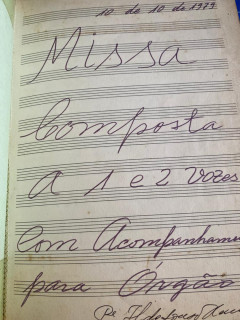 10 de 10 de 1979
Missa
Composta
a 1 e 2 vozes
Com Acompanhame
para Órgão
Pe